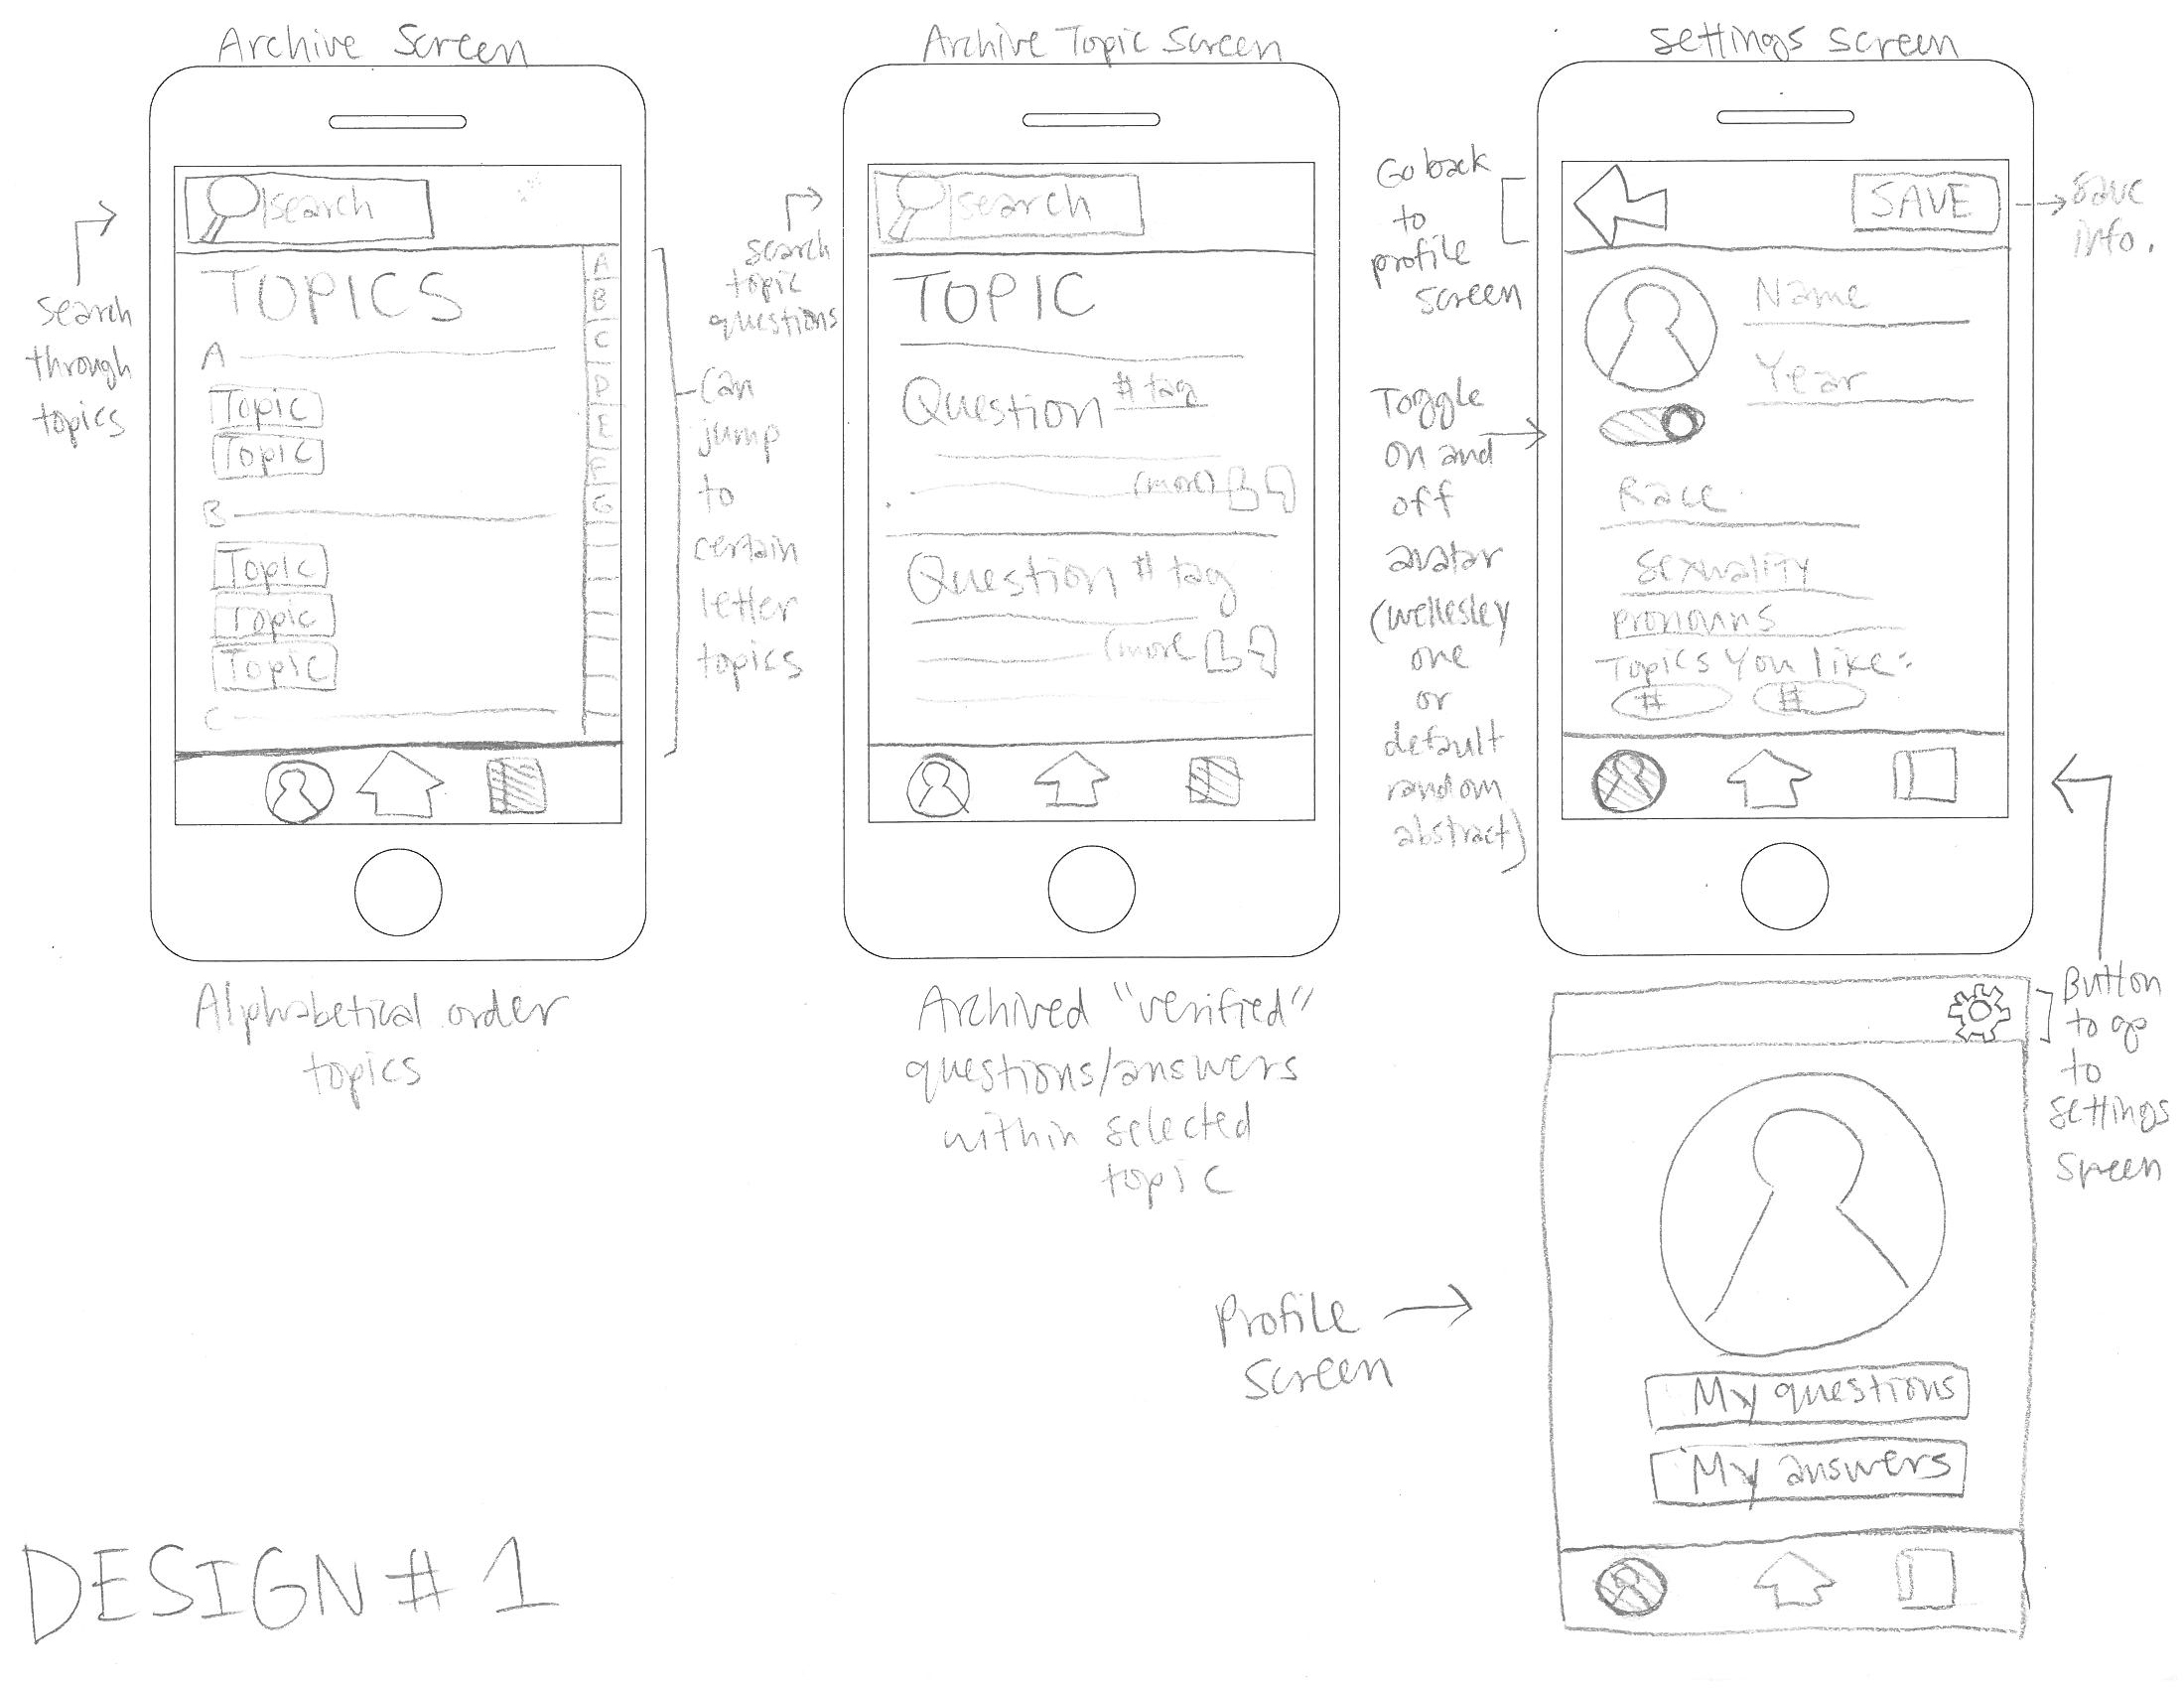 Archive Screen
search
through
topics
search
TOPICS
A
Topic
Topic
B
Topic
Topic
Topic
C
A
B
C
D
E
F
G
Can
jump
to
certain
letter
topics
Alphabetical order
topics
Archive Topic Screen
search
topic
questions
search
TOPIC
Question # tag
(more)
Question # tag
(more
Archived "verified"
questions/answers
within selected
topic
Settings Screen
Go back
to
profile
screen
SAVE
save
info.
Name
Year
Toggle
on and
off
avatar
(wellesley
one
or
default
random
abstract)
Race
Sexuality
pronouns
Topics you like:
# #
Button
to go
to
settings
screen
Profile
screen
My questions
My answers
DESIGN # 1